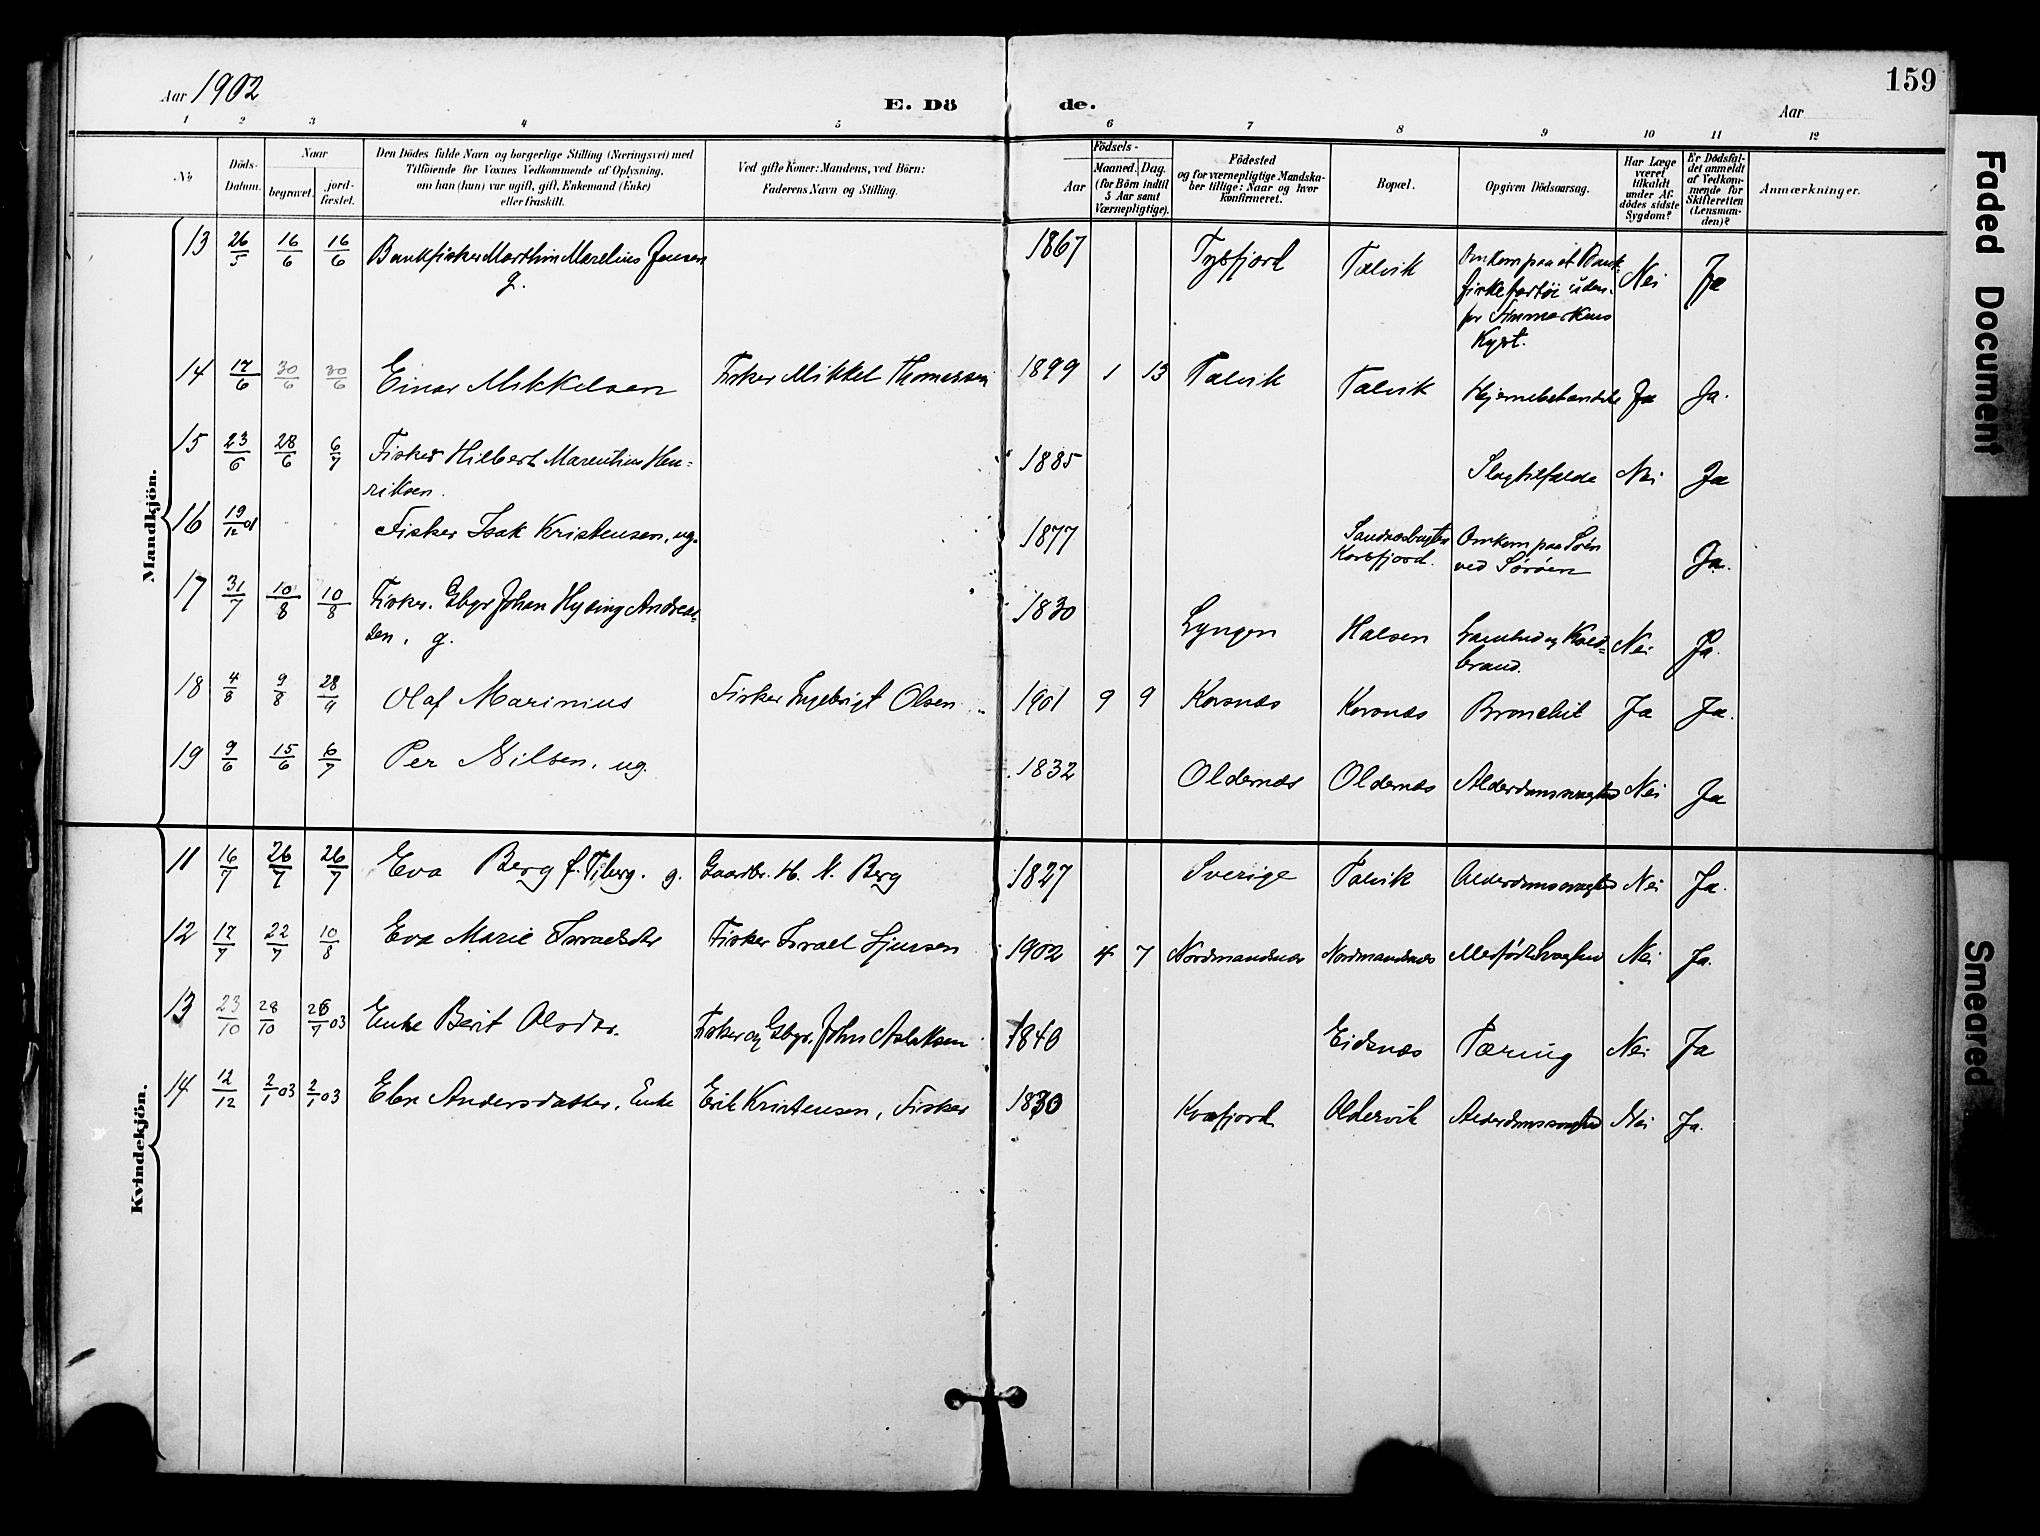 159
Aar 1902
E. Dö de.
Aar
1 2 3 4 5 6 7 8 9 10 11 12
No
Döds-Datum.
Naar
begravet.
jord-fæstet.
Den Dödes fulde Navn og borgerlige Stilling (Næringsvei) med
Tilföiende for Voxnes Vedkommende af Oplysning,
om han (hun) var ugift, gift, Enkemand (Enke)
eller fraskilt.
Ved gifte Koner: Mandens, ved Börn:
Faderens Navn og Stilling.
Födsels-
Aar
Maaned. Dag.
(for Börn indtil
5 Aar samt
Værnepligtige).
Födested
og for værnepligtige Mandska-
ber tillige: Naar og hvor
konfirmeret.
Bopæl.
Opgiven Dödsaarsag.
Har Læge
været
tilkaldt
under Af-
dödes sidste
Sygdom?
Er Dödsfal-
det anmeldt
af Vedkom-
mende for
Skifteretten
(Lensman-
den)?
Anmærkninger.
Mandkjön.
13 26/5 16/6 16/6 Bankfisker Marthin Marelius Jensen 1867 Tysfjord Talvik Omkom paa et Bank-
g. fiskefartöi uden-
for Finmarkens
Kyst. Nei Ja
14 17/6 30/6 30/6 Einar Mikkelsen Fisker Mikkel Thomassen 1899 1 13 Talvik Talvik Ja Ja.
15 23/6 28/6 6/7 Fisker Hilbert Marentius Hen-
riksen. 1885 Slagtilfælde Nei Ja
16 19/12 01 Fisker Isak Kristensen, ug. 1877 Korsfjord. Omkom paa Söen
ved Söröen Ja.
17 31/7 10/8 10/8 Fisker. Gbgr Johan Hysing Andreas-
sen, g. 1830 Lyngen Halsen Kold-
brand. Nei Ja.
18 4/8 9/8 28/9 Olaf Marinius Fisker Ingebrigt Olsen 1901 9 9 Korsnæs Korsnæs Bronchit Ja Ja.
19 9/6 15/6 6/7 Per Nilsen, ug. 1832 Oldernæs Oldernæs Alderdomssvaghed Nei Ja
Kvindekjön.
11 16/7 26/7 26/7 Eva Berg f. Tiberg. g. Gaardbr. H. N. Berg 1827 Sverige Talvik Alderdomssvaghed Nei Ja.
12 17/7 22/7 10/8 Eva Marie Israelsdtr Fisker Israel Sjursen 1902 4 7 Nordmandsnæs Nordmandsnæs Medfödt Svaghed Nei Ja.
13 23/10 28/10 26/7 03 Enke Berit Olsdtr. Fisker og Gbgr. John Aslaksen 1840 Eidsnæs Tæring Nei Ja
14 12/12 2/1 03 2/1 03 Elen Andersdatter. Enke Erik Kristensen, Fisker 1830 Kvæfjord Oldervik Alderdomssvaghed Nei Ja.
Faded Document
Smeared